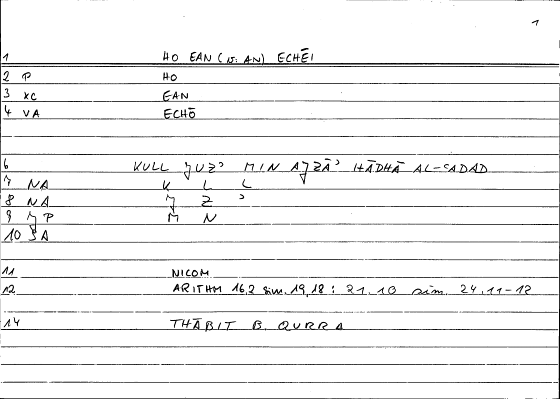 1
1 HO EAN (N: AN) ECHĒI
2 P HO
3 XC EAN
4 VA ECHŌ
6 KULL JUZʾ MIN AJZĀʾ HĀDHĀ AL-ʿADAD
7 NA K L L
8 NA J Z ʾ
9 JP M N
10 JA
11 NICOM
12 ARITHM 16,2 sim. 19,18 : 21.10 sim. 24.11-12
14 THĀBIT B. QURRA